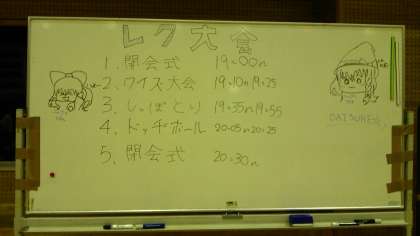 レク大会
1. 開会式 19:00~
2. クイズ大会 19:10~19:25
3. しっぽとり 19:35~19:55
4. ドッヂボール 20:05~20:25
5. 閉会式 20:30~